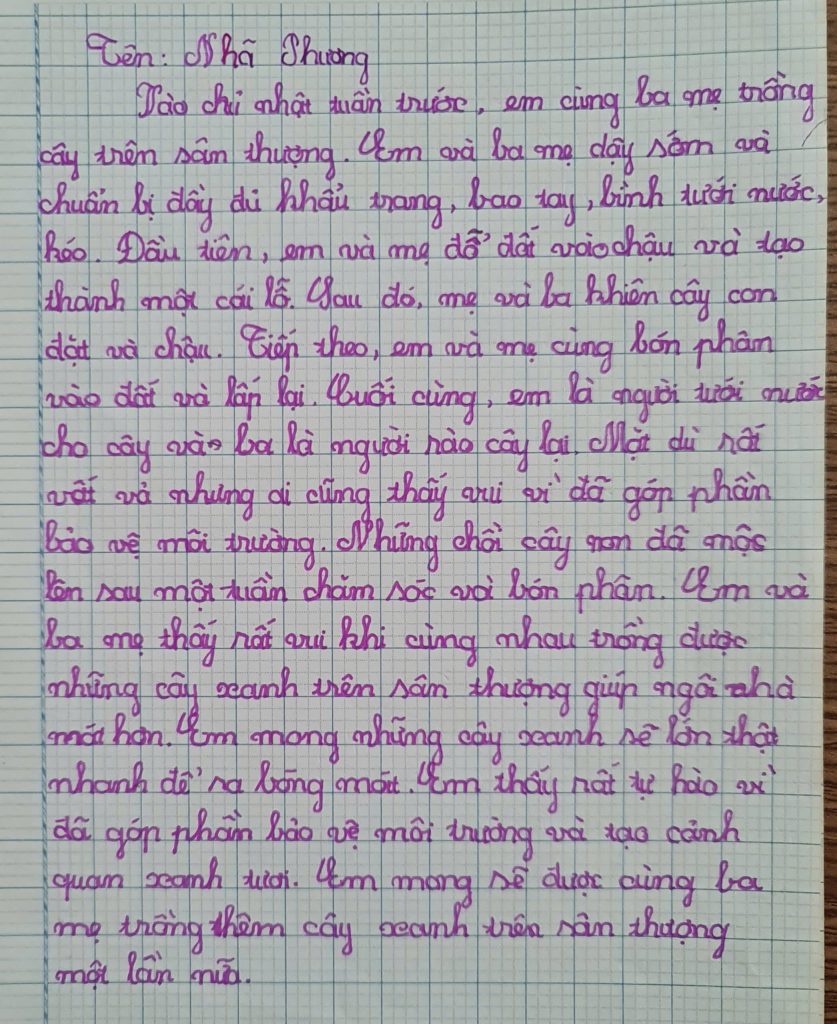 Tên: Nhã Phương
Vào chủ nhật tuần trước, em cùng ba mẹ trồng
cây trên sân thượng. Em và ba mẹ dậy sớm và
chuẩn bị đầy đủ khẩu trang, bao tay, bình tưới nước,
kéo. Đầu tiên, em và mẹ đổ đất vào chậu và tạo
thành một cái lỗ. Sau đó, mẹ và ba khiên cây con
đặt và chậu. Tiếp theo, em và mẹ cùng bón phân
vào đất và lấp lại. Cuối cùng, em là người tưới nước
cho cây và ba là người rào cây lại. Mặt dù rất
vất vả nhưng ai cũng thấy vui vì đã góp phần
bảo vệ môi trường. Những chồi cây non đã mộc
lên sau một tuần chăm sóc và bón phân. Em và
ba mẹ thấy rất vui khi cùng nhau trồng được
những cây xanh trên sân thượng giúp ngôi nhà
mát hơn. Em mong những cây xanh sẽ lớn thật
nhanh để ra bóng mát. Em thấy rất tự hào vì
đã góp phần bảo vệ môi trường và tạo cảnh
quan xanh tươi. Em mong sẽ được cùng ba
mẹ trồng thêm cây xanh trên sân thượng
một lần nữa.